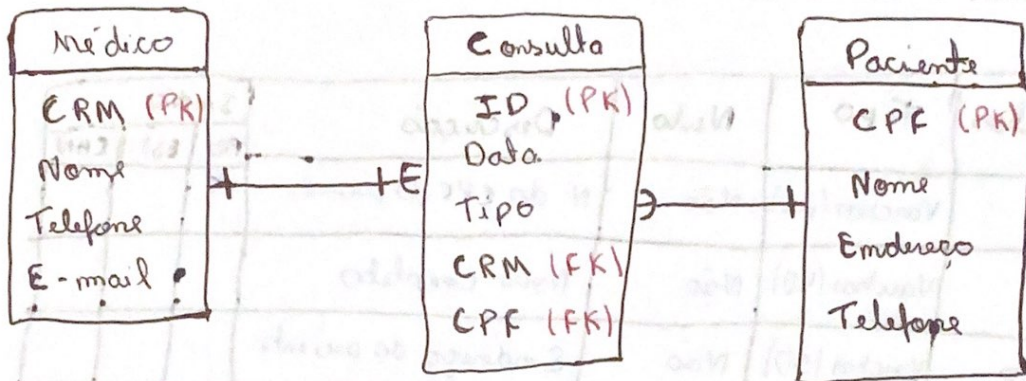 Médico
CRM (PK)
Nome
Telefone
E-mail
Consulta
ID (PK)
Data
Tipo
CRM (FK)
CPF (FK)
Paciente
CPF (PK)
Nome
Endereço
Telefone